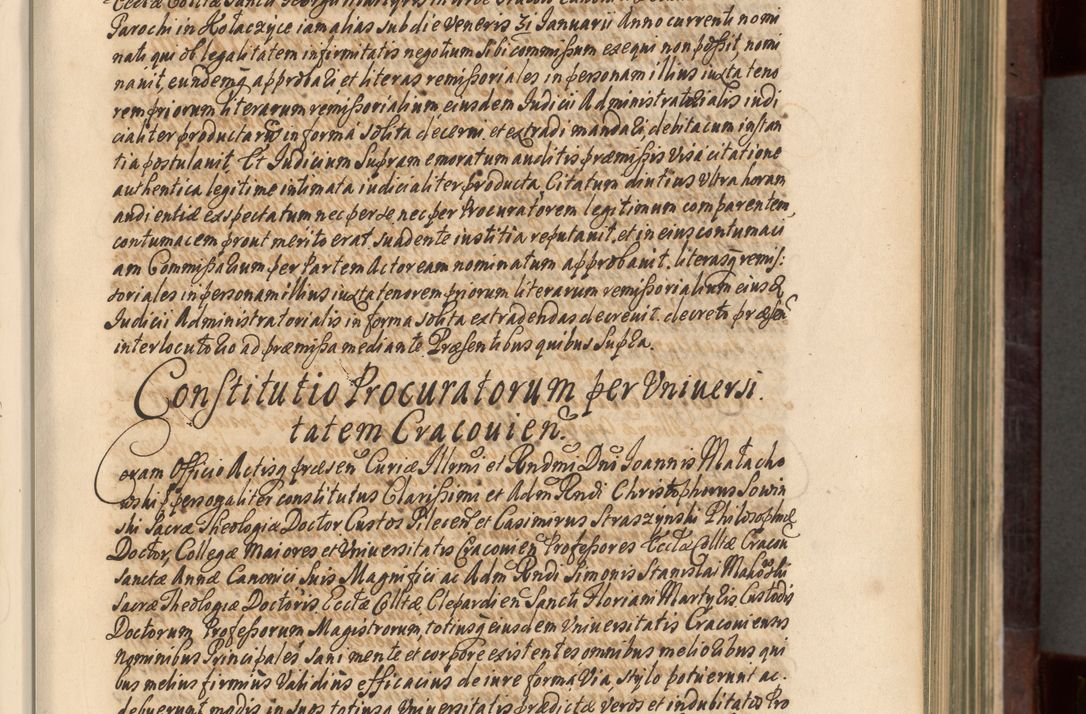 Parochi in Kołaczyce iam alias sub die Veneris 31 Januarii Anno currenti nomi
nati qui ob legalitatem infirmitatis negotium sibi commissum exequi non possit, nomi
navit, eundemq approbari et literas remissoriales in personam illius iuxta teno
rem priorum literarum remissorialium eiusdem Judicii Administratorialis iudi
cialiter productarum in forma solita decerni et extradi mandari debita cum instan
tia postulavit. Et Judicium Supramemoratum auditis præmissis visa citatione
authentica legitime intimata iudicialiter producta Citatum diutius Ultra horam
audientiæ exspectatum nec per se nec per Procuratorem legitimum comparentem
contumacem prout merito erat suadente iustitia reputavit, et in eius contumaci
am Commissarium per Partem Actoream nominatum approbavit. literasq remis:
soriales in personam illius iuxta tenorem priorum literarum remissorialium eiusd
Judicii Administratorialis in forma solita extradendas decrevit. decreto præsen
interlocutorio ad præmissa mediante Præsentibus quibus Supra.
Constitutio Procuratorum per Universi
tatem Cracovien.
Coram Officio Actisq præsen Curiæ Illrmi et Rndmi Dni Joannis Małacho
wski personaliter constitutus Clarissimi et Adm Rndi Christophorus Sowin
ski Sacræ Theologiæ Doctor Custos Pilecen et Casimirus Straszynski Philosophiæ
Doctor, Collegæ Maiores et Universitatis Cracovien Professores Ecclæ Colltæ Cracov
Sanctæ Annæ Canonici Suis Magnifici ac Adm Rndi Simonis Stanislai Makowski
Sacræ Theologiæ Doctoris Ecclæ Colltæ Clepardien Sancti Floriani Martyris Custodis
Doctorum Professorum Magistrorum, totiusq eiusdem Universitatis Cracoviensis
Nominibus Principales sani mente et corpore existentes omnibus melioribus qui
bus melius firmius Validius efficacius de iure forma, Via, stylo potuerunt ac.
debuerunt modis in suos totius Universitatis prædictæ veros et indubitatos Pro